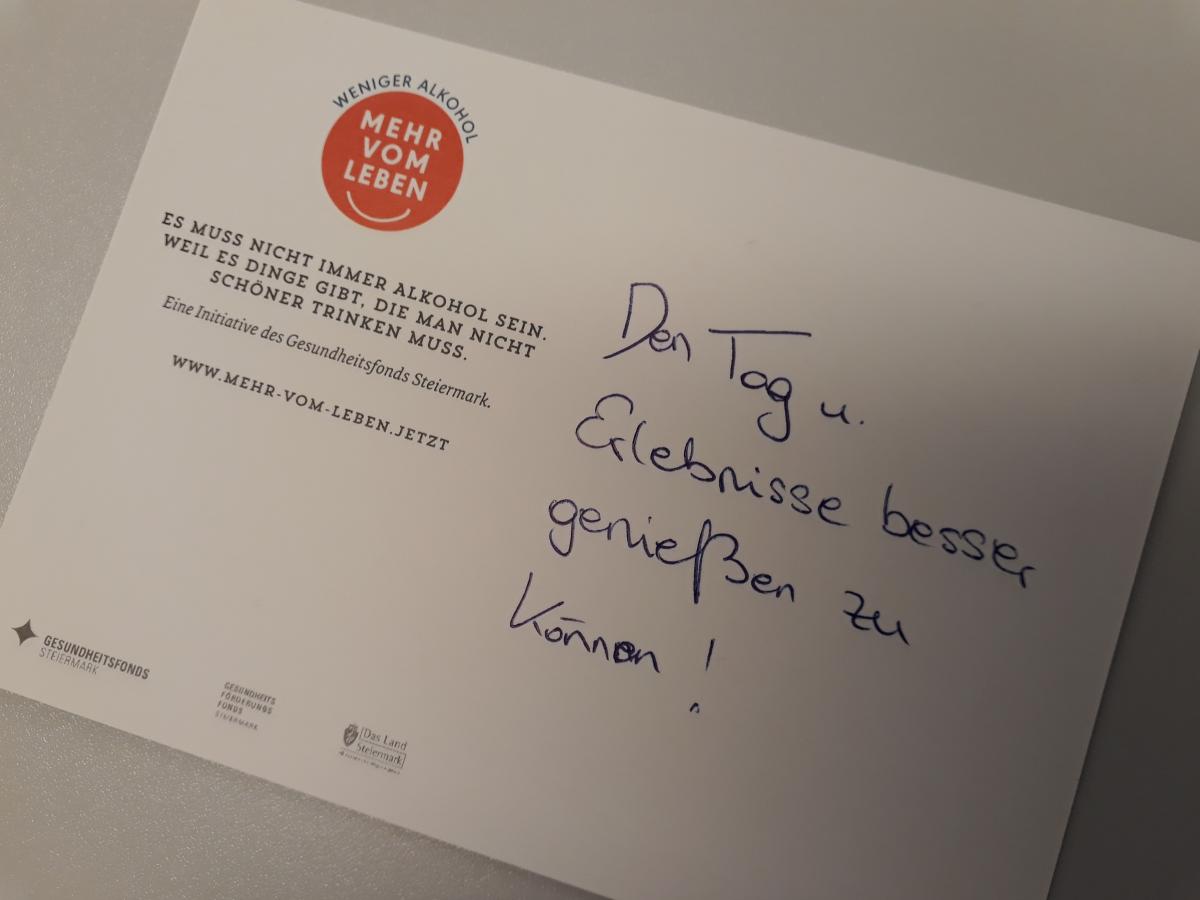 WENIGER ALKOHOL
MEHR
VOM
LEBEN
ES MUSS NICHT IMMER ALKOHOL SEIN.
WEIL ES DINGE GIBT, DIE MAN NICHT
SCHÖNER TRINKEN MUSS.
Eine Initiative des Gesundheitsfonds Steiermark.
WWW.MEHR-VOM-LEBEN.JETZT
Den Tag u.
Erlebnisse besser
genießen zu
können!
GESUNDHEITSFONDS
STEIERMARK
GESUNDHEITS
FÖRDERUNGS
FONDS
STEIERMARK
Das Land
Steiermark